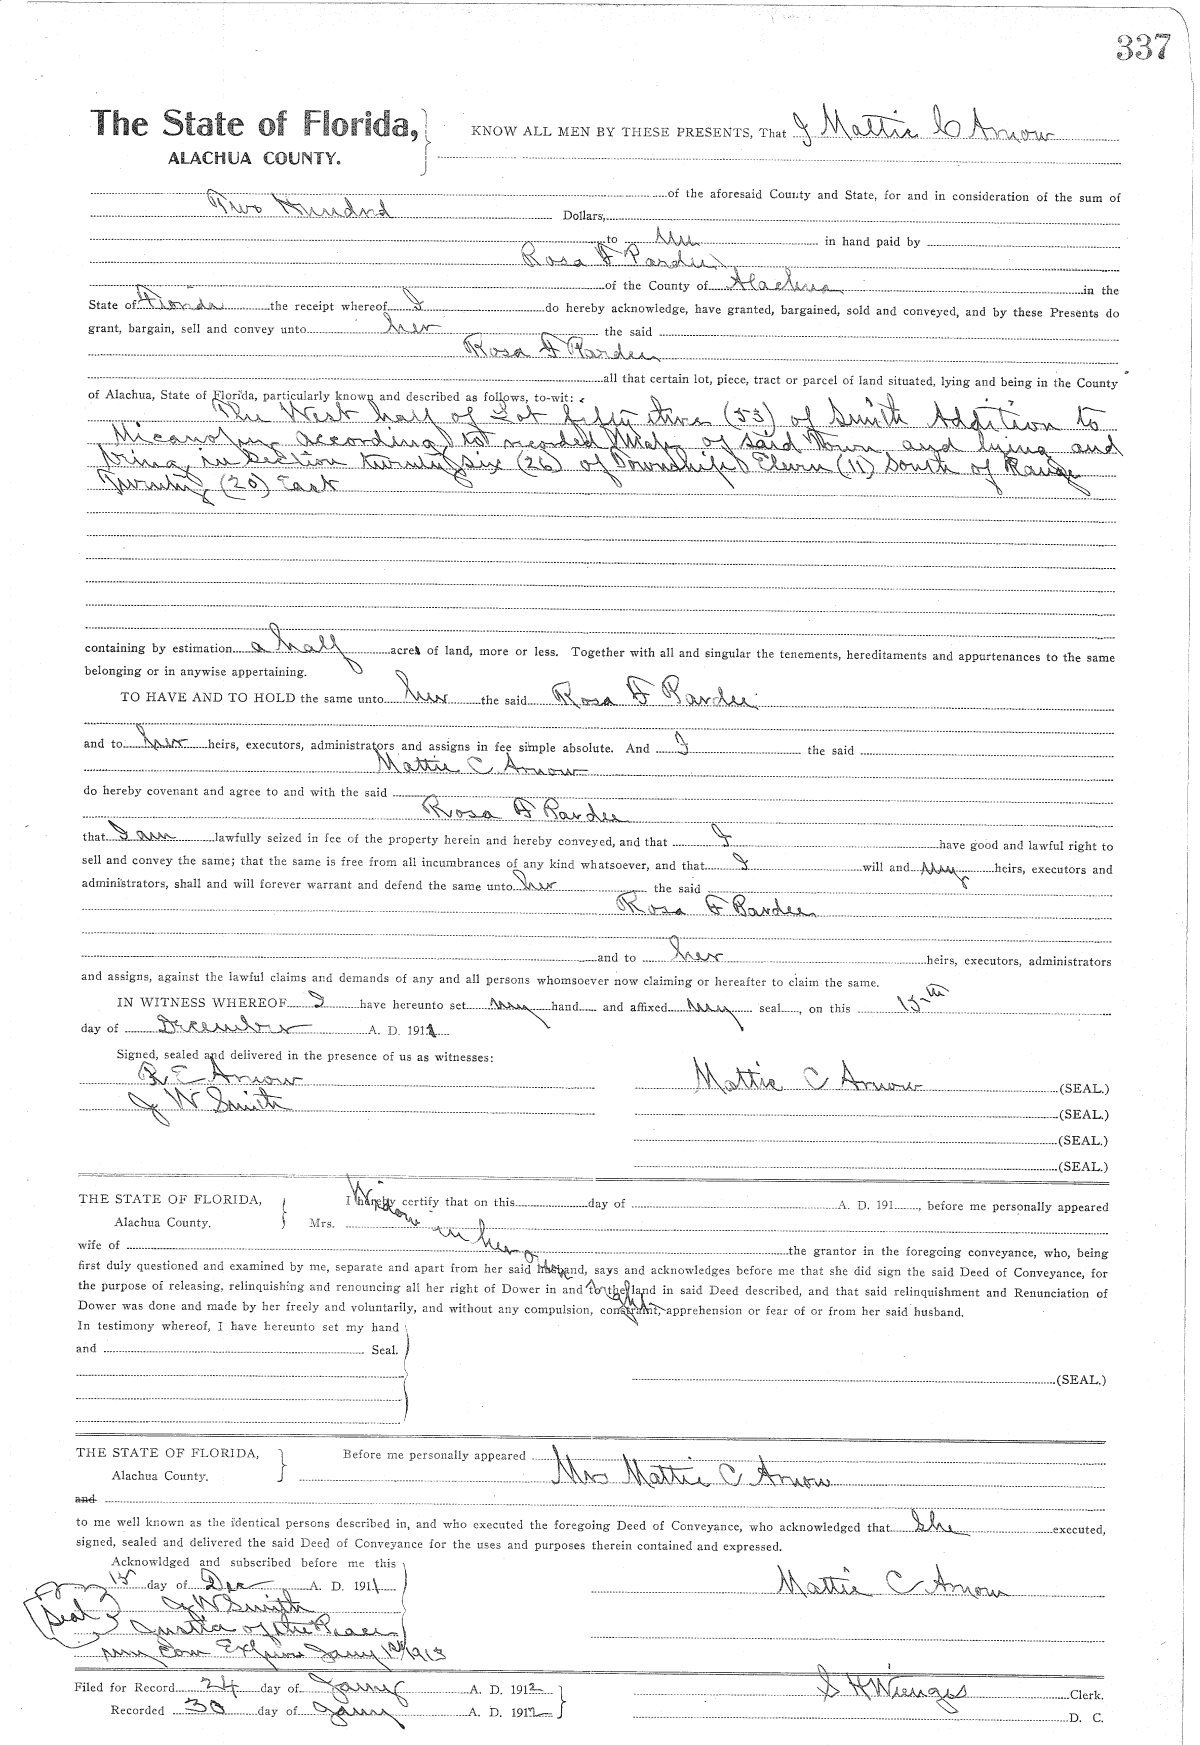 337
The State of Florida, KNOW ALL MEN BY THESE PRESENTS, That I Mattie C Arnow
ALACHUA COUNTY.
of the aforesaid County and State, for and in consideration of the sum of
Two Hundrd Dollars,
to me in hand paid by
Rosa F Pardee
of the County of Alachua in the
State of Florida the receipt whereof I do hereby acknowledge, have granted, bargained, sold and conveyed, and by these Presents do
grant, bargain, sell and convey unto her the said
Rosa F Pardee
all that certain lot, piece, tract or parcel of land situated, lying and being in the County
of Alachua, State of Florida, particularly known and described as follows, to-wit:
The West half of Lot fifty three (53) of Smith Addition to
Micanopy according to recorded Map of said Town and lying and
being in Section twenty six (26) of Township Eleven (11) South of Range
Twenty (20) East
containing by estimation a half acre of land, more or less. Together with all and singular the tenements, hereditaments and appurtenances to the same
belonging or in anywise appertaining.
TO HAVE AND TO HOLD the same unto her the said Rosa F Pardee
and to her heirs, executors, administrators and assigns in fee simple absolute. And I the said
Mattie C Arnow
do hereby covenant and agree to and with the said
Rosa F Pardee
that I am lawfully seized in fee of the property herein and hereby conveyed, and that I have good and lawful right to
sell and convey the same; that the same is free from all incumbrances of any kind whatsoever, and that I will and my heirs, executors and
administrators, shall and will forever warrant and defend the same unto her the said
Rosa F Pardee
and to her heirs, executors, administrators
and assigns, against the lawful claims and demands of any and all persons whomsoever now claiming or hereafter to claim the same.
IN WITNESS WHEREOF I have hereunto set my hand and affixed my seal, on this 15th
day of December A. D. 1911
Signed, sealed and delivered in the presence of us as witnesses:
R E Arnow Mattie C Arnow (SEAL.)
J W Smith (SEAL.)
(SEAL.)
(SEAL.)
THE STATE OF FLORIDA, I hereby certify that on this day of A. D. 191 , before me personally appeared
Alachua County. Mrs. Widow in her
wife of the grantor in the foregoing conveyance, who, being
first duly questioned and examined by me, separate and apart from her said husband, says and acknowledges before me that she did sign the said Deed of Conveyance, for
the purpose of releasing, relinquishing and renouncing all her right of Dower in and to the land in said Deed described, and that said relinquishment and Renunciation of
Dower was done and made by her freely and voluntarily, and without any compulsion, constraint, apprehension or fear of or from her said husband.
In testimony whereof, I have hereunto set my hand
and Seal.
(SEAL.)
THE STATE OF FLORIDA, Before me personally appeared
Alachua County. Mrs Mattie C Arnow
and
to me well known as the identical persons described in, and who executed the foregoing Deed of Conveyance, who acknowledged that She executed,
signed, sealed and delivered the said Deed of Conveyance for the uses and purposes therein contained and expressed.
Acknowldged and subscribed before me this
15 day of Dec A. D. 1911 Mattie C Arnow
J W Smith
Seal Justice of the Peace
my Com Expires Jany 1st 1913
Filed for Record 24 day of Jany A. D. 1912 S H Wienges Clerk.
Recorded 30 day of Jany A. D. 1912 D. C.